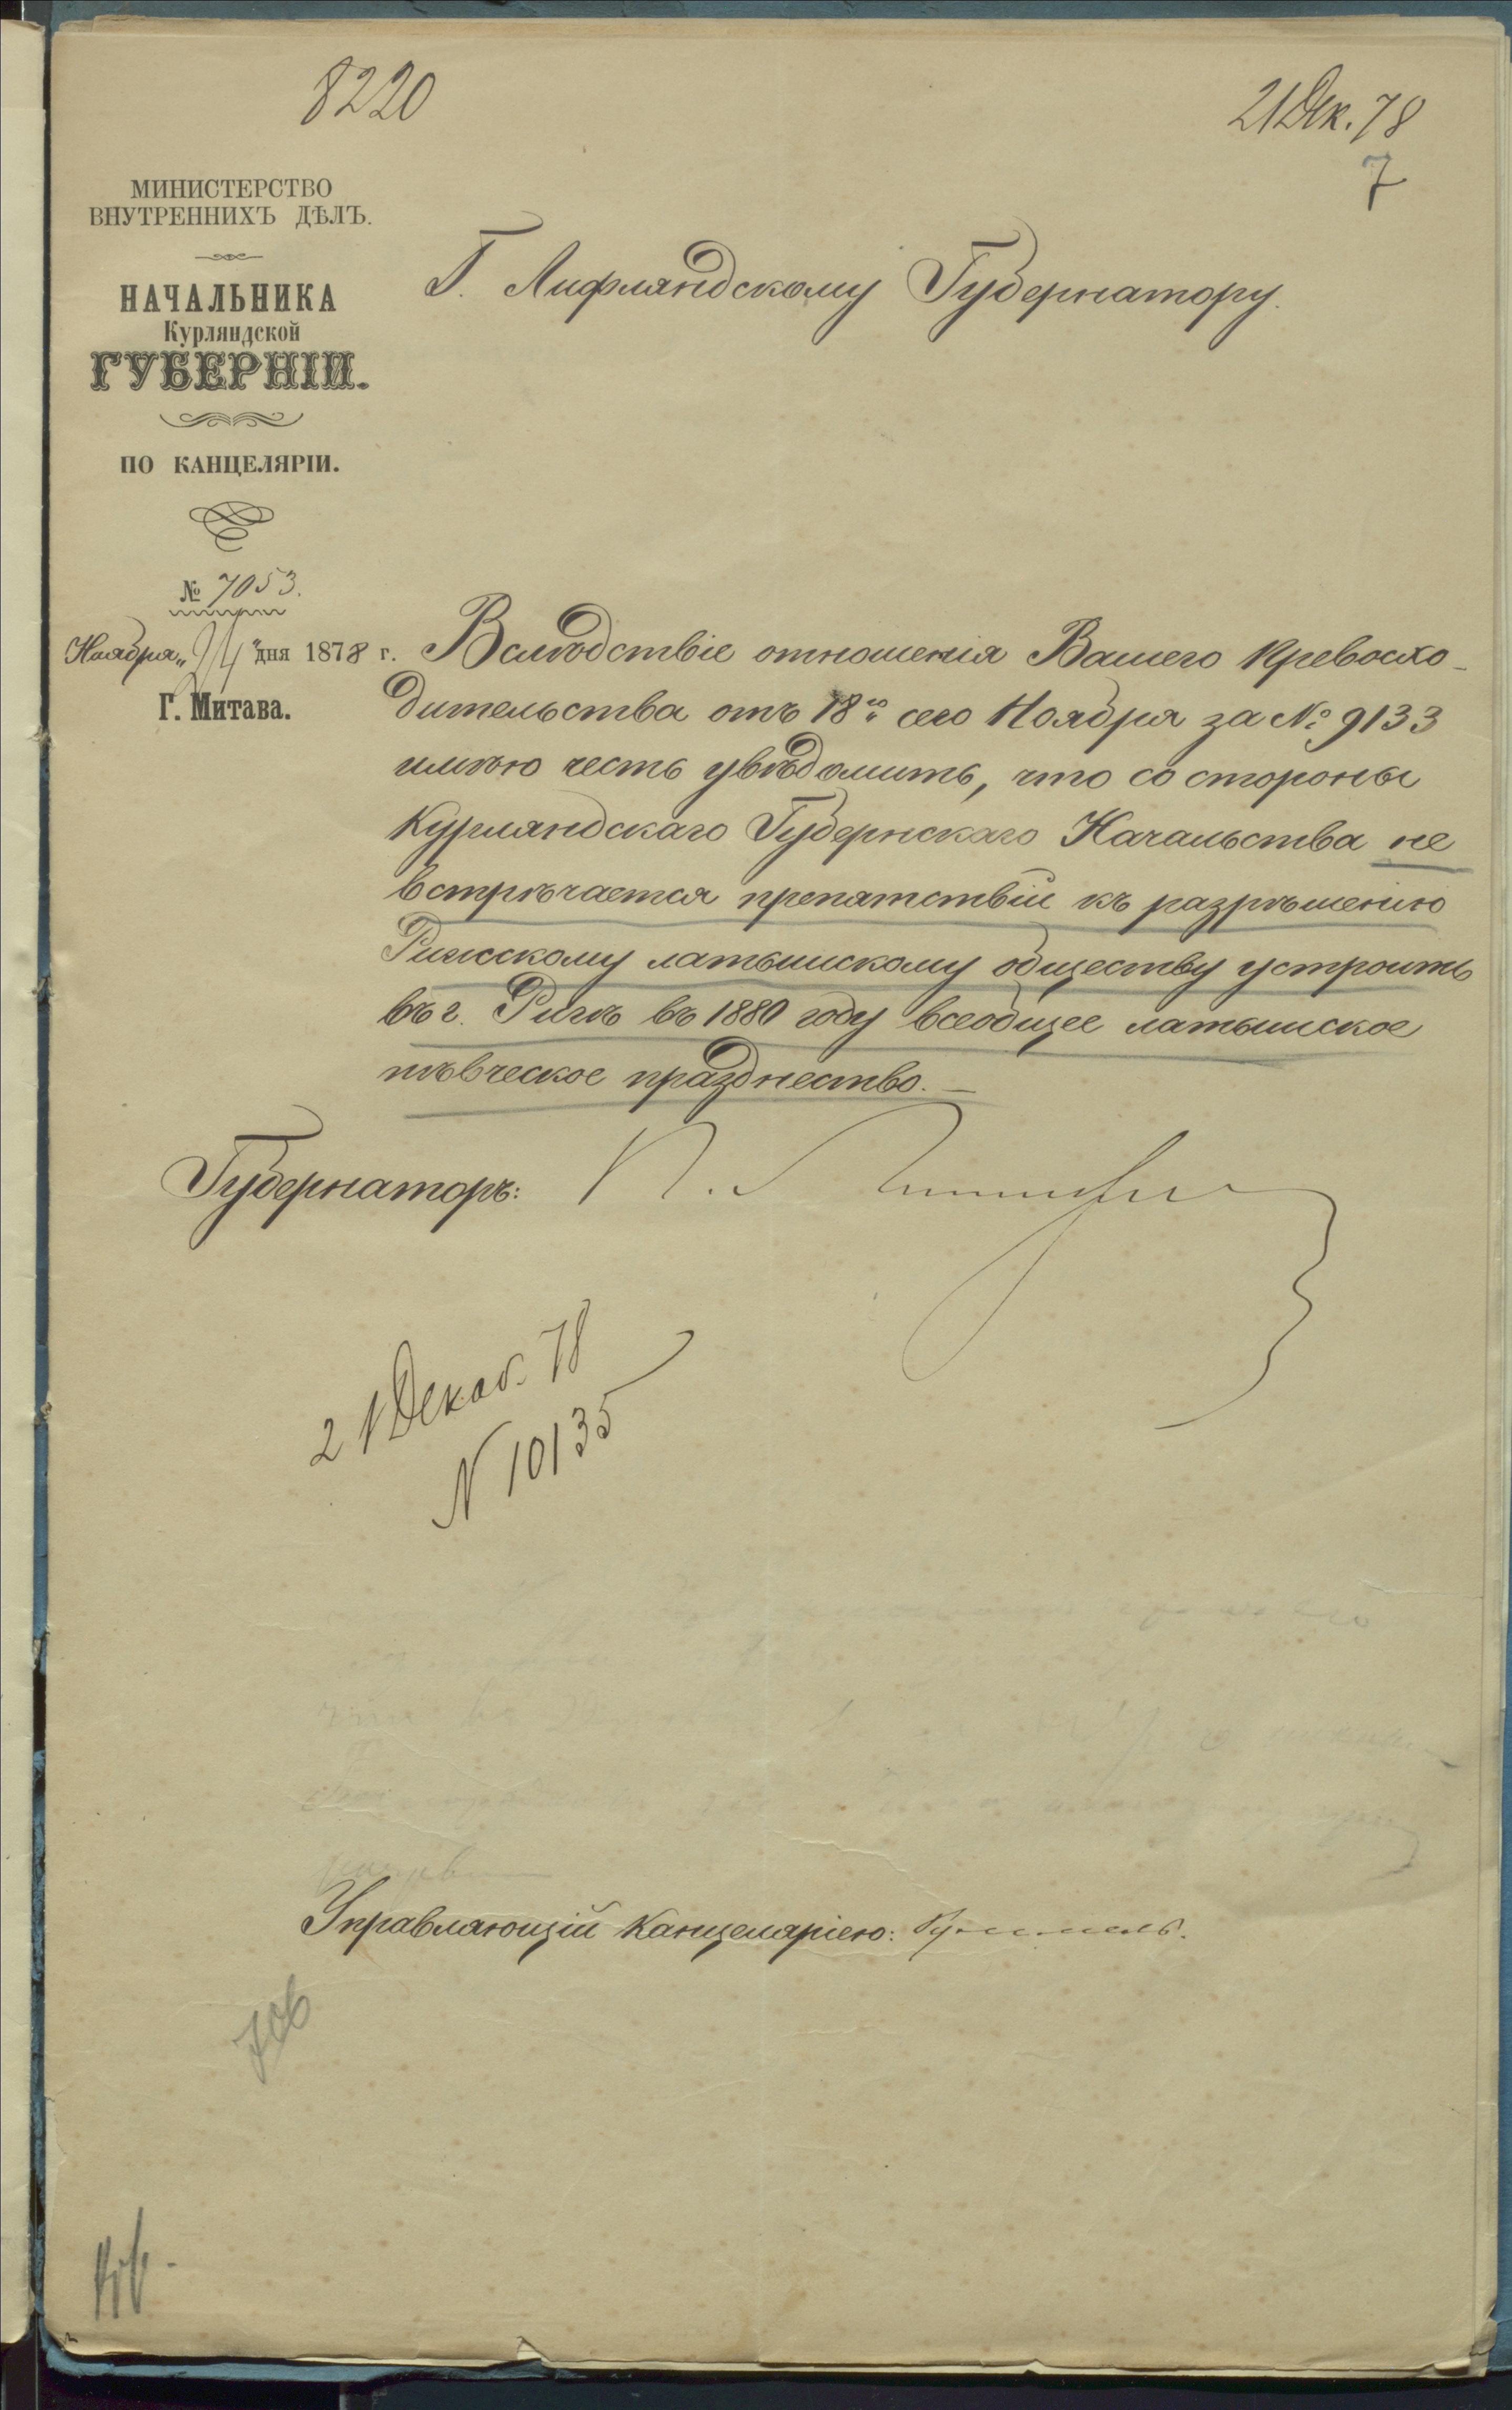 8220
21 Дек. 78
7
МИНИСТЕРСТВО
ВНУТРЕННИХЪ ДѢЛЪ.
НАЧАЛЬНИКА
Курляндской
ГУБЕРНІИ.
ПО КАНЦЕЛЯРІИ.
№ 7053.
Ноября „24" дня 1878 г.
Г. Митава.
Г. Лифляндскому Губернатору.
Вслѣдствіе отношенія Вашего Превосхо-
дительства отъ 18го сего Ноября за № 9133
имѣю честь увѣдомить, что со стороны
Курляндскаго Губернскаго Начальства не
встрѣчается препятствій къ разрѣшенію
Рижскому латышскому обществу устроить
въ г. Ригѣ въ 1880 году всеобщее латышское
пѣвческое празднество.—
Губернаторъ:
21 Декаб. 78
N 10135
Управляющій Канцеляріею:
706